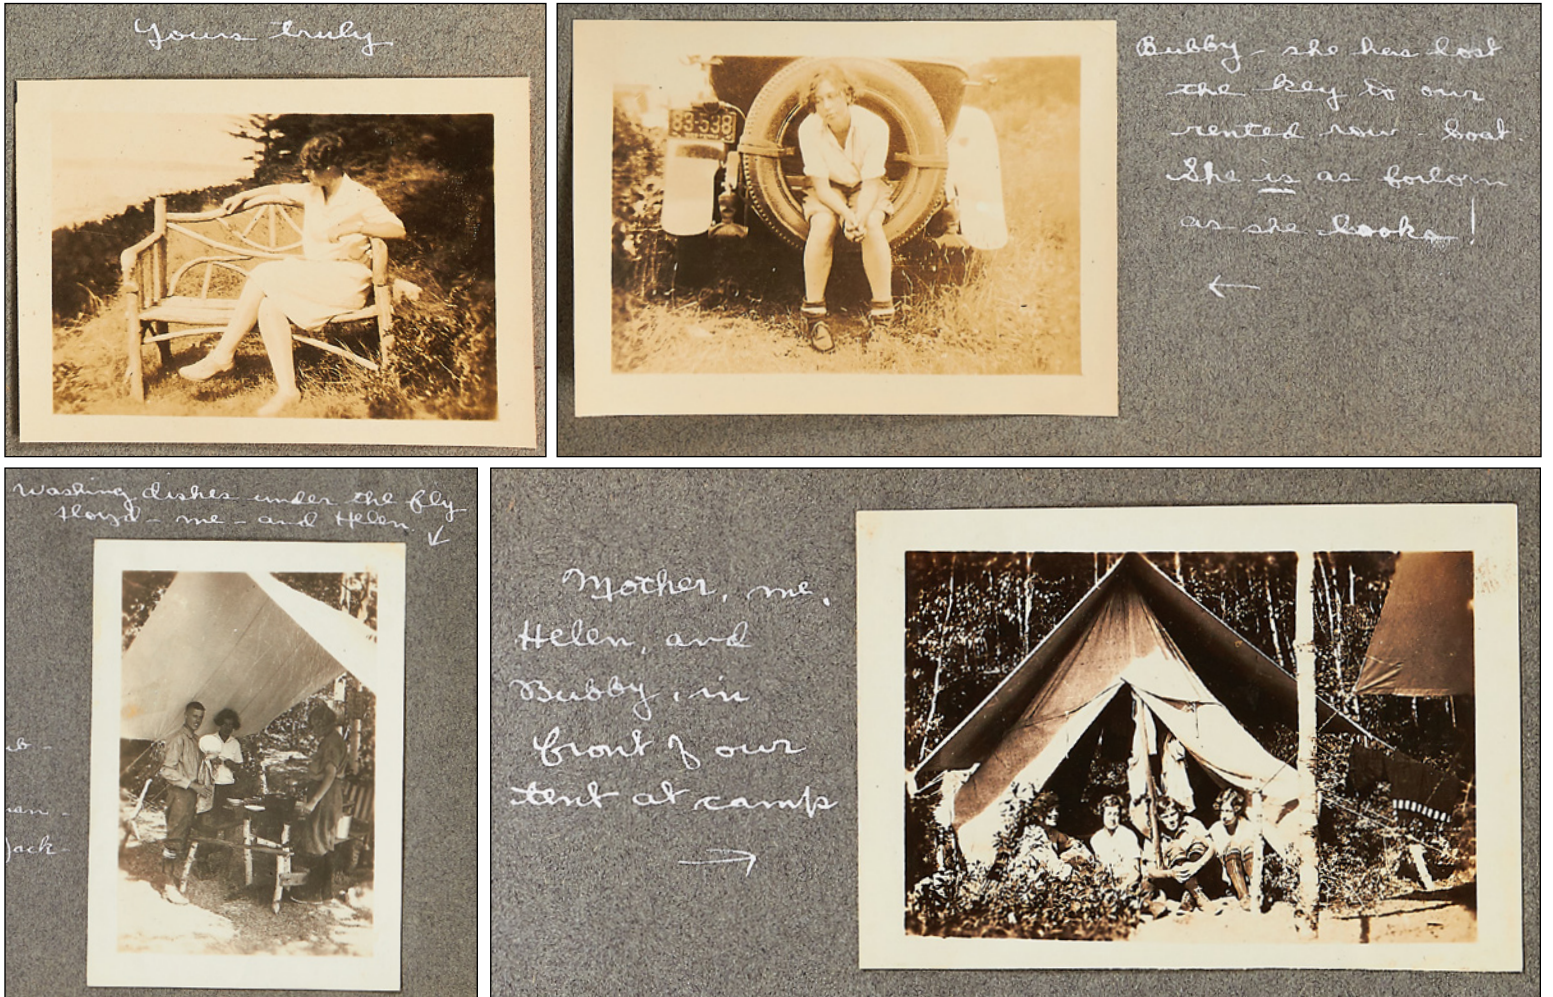 Yours truly
Bubby - she has lost
the key to our
rented row-boat.
She is as forlorn
as she looks!
←
83-538
Washing dishes under the fly
Floyd - me - and Helen
↙
Mother, me,
Helen, and
Bubby, in
front of our
tent at camp
→
ack-